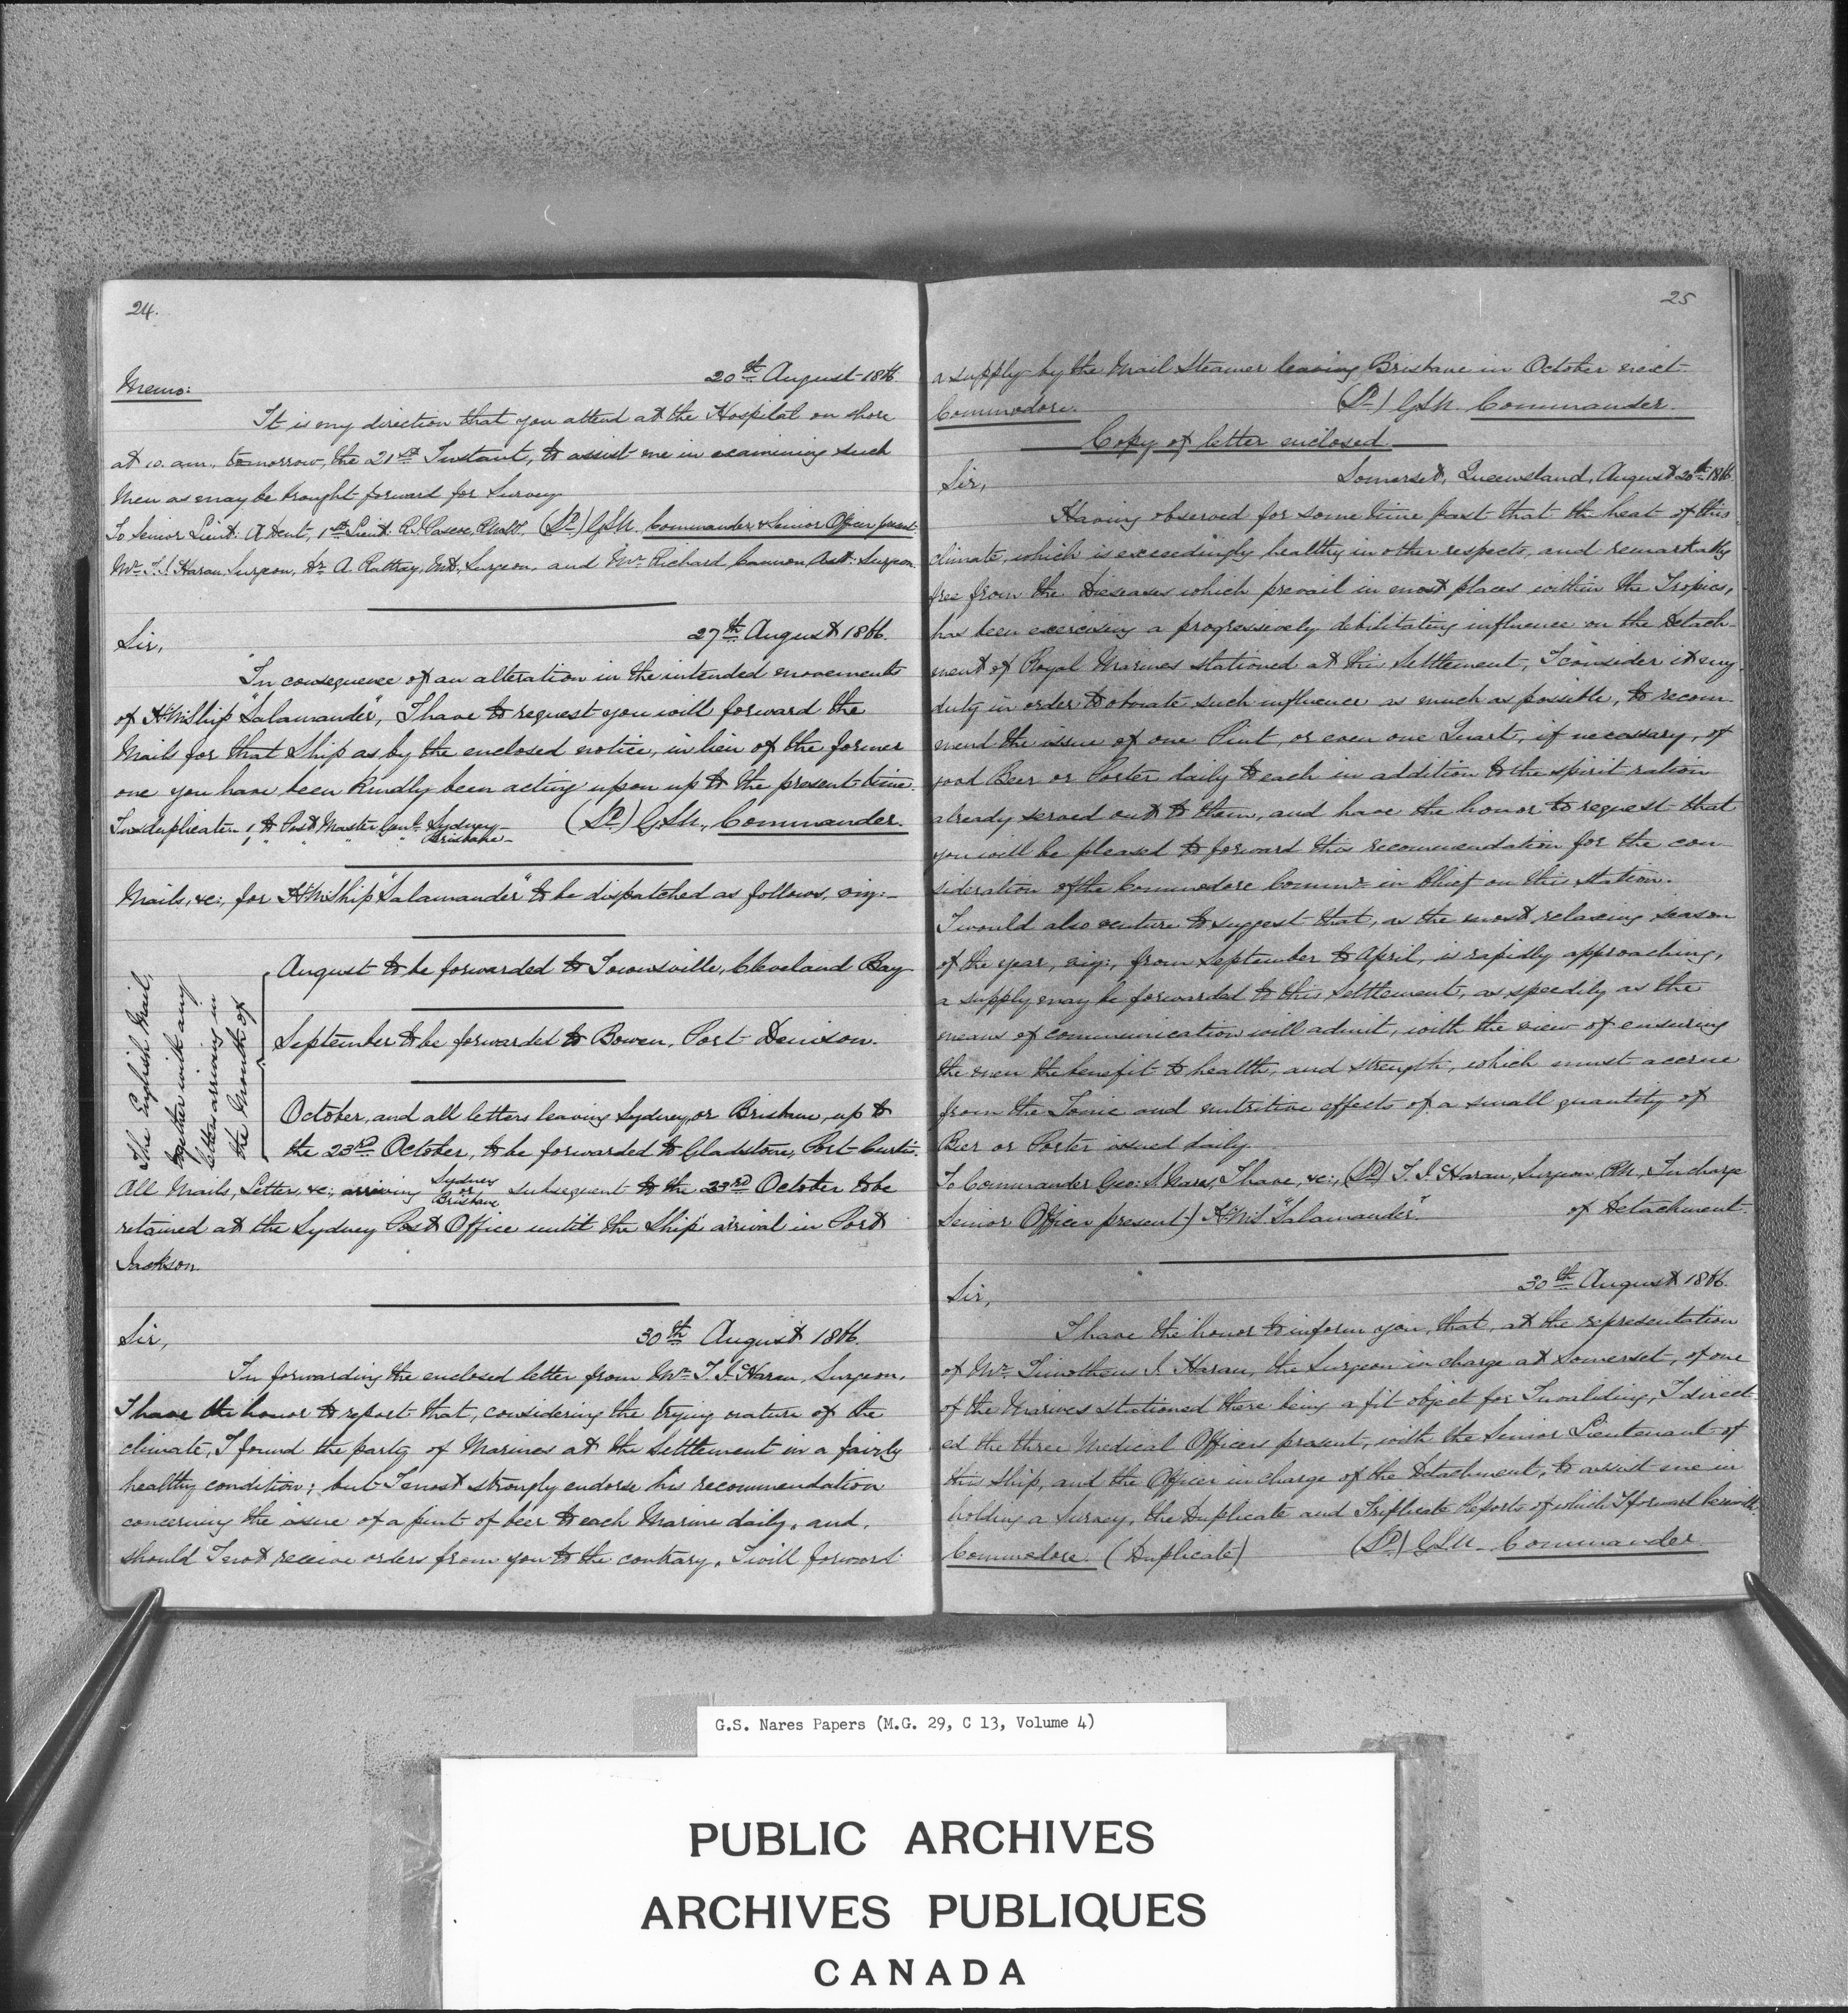 24.
Memo:
20th August 1866.
It is my direction that you attend at the Hospital on shore
at 10. am., tomorrow, the 21st Instant, to assist me in examining such
Men as may be brought forward for Survey.
To Senior Lieut: A Dent, 1st Lieut. R. J. Pascoe, RMLI, (Sd) GSN. Commander & Senior Officer present.
Mr. T. J. Haran Surgeon, Dr. A. Rattray, MD, Surgeon, and Mr. Richard Cannon Asst: Surgeon.
27th August 1866.
Sir,
In consequence of an alteration in the intended movements
of H.M.Ship "Salamander", I have to request you will forward the
Mails for that Ship as by the enclosed notice, in lieu of the former
one you have been kindly been acting upon up to the present time.
In duplicate. 1 to Post Master Genl. Sydney – (Sd) GSN., Commander.
1 " " " " Brisbane –
Mails, &c:, for H.M.Ship "Salamander" to be dispatched as follows, viz:–
The English Mail,
together with any
letters arriving in
the Month of
August to be forwarded to Townsville, Cleveland Bay
September to be forwarded to Bowen, Port Denison.
October, and all letters leaving Sydney, or Brisbane, up to
the 23rd October, to be forwarded to Gladstone, Port Curtis.
All Mails, Letters, &c:, arriving Sydney or Brisbane subsequent to the 23rd October to be
retained at the Sydney Post Office until the Ship' arrival in Port
Jackson.
Sir,
30th August 1866.
In forwarding the enclosed letter from Mr. T. J. Haran, Surgeon,
I have the honor to report that, considering the trying nature of the
climate, I found the party of Marines at the Settlement in a fairly
healthy condition; but I most strongly endorse his recommendation
concerning the issue of a pint of beer to each Marine daily, and,
should I not receive orders from you to the contrary, I will forward
25
a supply by the Mail Steamer leaving Brisbane in October next
Commodore. (Sd) GSN. Commander.
Copy of letter enclosed.
Sir, Somerset, Queensland, August 20th 1866.
Having observed for some time past that the heat of this
climate, which is exceedingly healthy in other respects, and remarkably
free from the Diseases which prevail in most places within the Tropics,
has been exercising a progressively debilitating influence on the Detach-
ment of Royal Marines stationed at this Settlement, I consider it my
duty in order to obviate such influence as much as possible, to recom-
mend the issue of one Pint, or even one Quart, if necessary, of
good Beer or Porter daily to each in addition to the spirit ration
already served out to them, and have the honor to request that
you will be pleased to forward this recommendation for the con-
sideration of the Commodore Commr. in Chief on this Station.
I would also venture to suggest that, as the most relaxing season
of the year, viz:, from September to April, is rapidly approaching,
a supply may be forwarded to this Settlement, as speedily as the
means of communication will admit, with the view of ensuring
the men the benefit to health, and strength, which must accrue
from the Tonic and nutritive effects of a small quantity of
Beer or Porter issued daily.
To Commander Geo: S. Nares, I have, &c:, (Sd) T. J. Haran, Surgeon RN., In charge
Senior Officer present) H.M.S "Salamander". of Detachment.
Sir, 30th August 1866.
I have the honor to inform you, that, at the representation
of Mr. Timotheus J. Haran, the Surgeon in charge at Somerset, of one
of the Marines stationed there being a fit object for Invaliding, I direct-
ed the three Medical Officers present, with the Senior Lieutenant of
this Ship, and the Officer in charge of the Detachment, to assist me in
holding a Survey, the Duplicate and Triplicate Reports of which I forward herewith.
Commodore. (Duplicate) (Sd) GSN. Commander
G.S. Nares Papers (M.G. 29, C 13, Volume 4)
PUBLIC ARCHIVES
ARCHIVES PUBLIQUES
CANADA